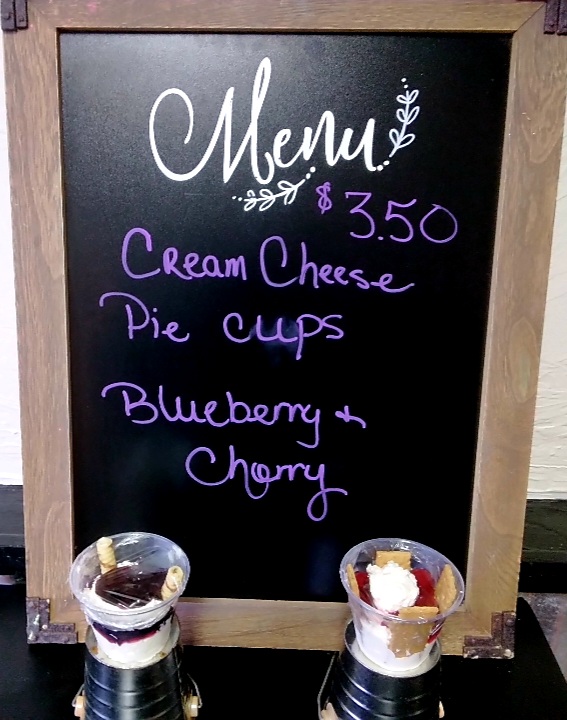 Menu
$3.50
Cream Cheese
Pie cups
Blueberry +
Cherry